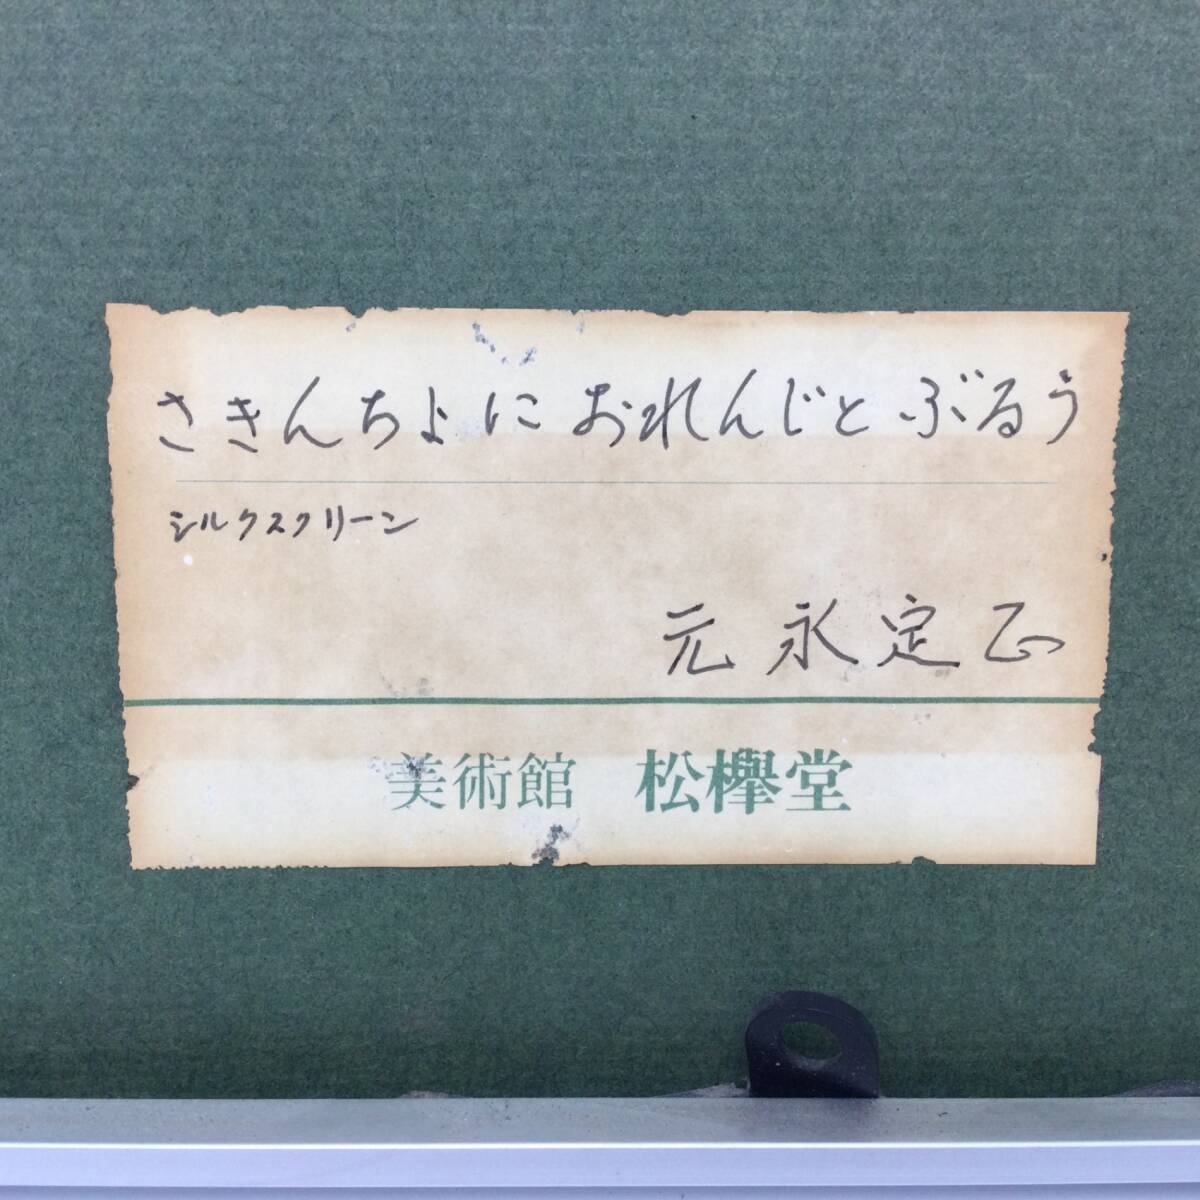 さきんちょに おれんじと ぶるう
シルクスクリーン
元永定正
美術館 松欅堂